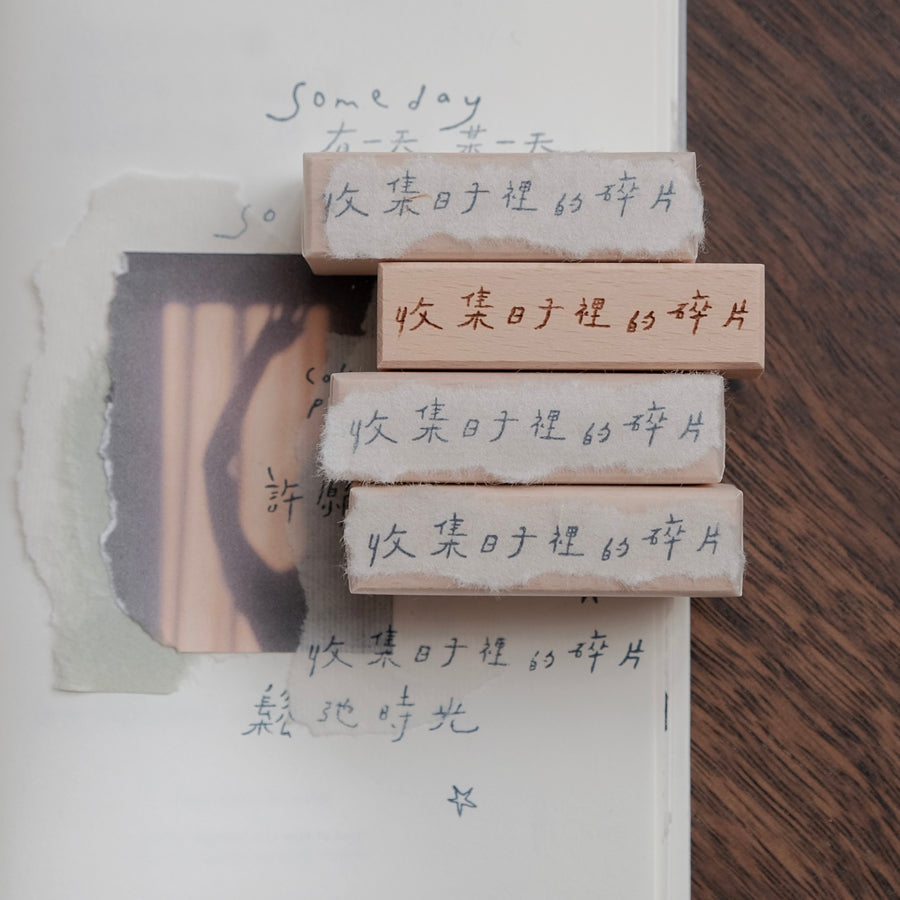 Someday
有一天 某一天
so
收集日子裡的碎片
收集日子裡的碎片
收集日子裡的碎片
許願
收集日子裡的碎片
收集日子裡的碎片
鬆弛時光